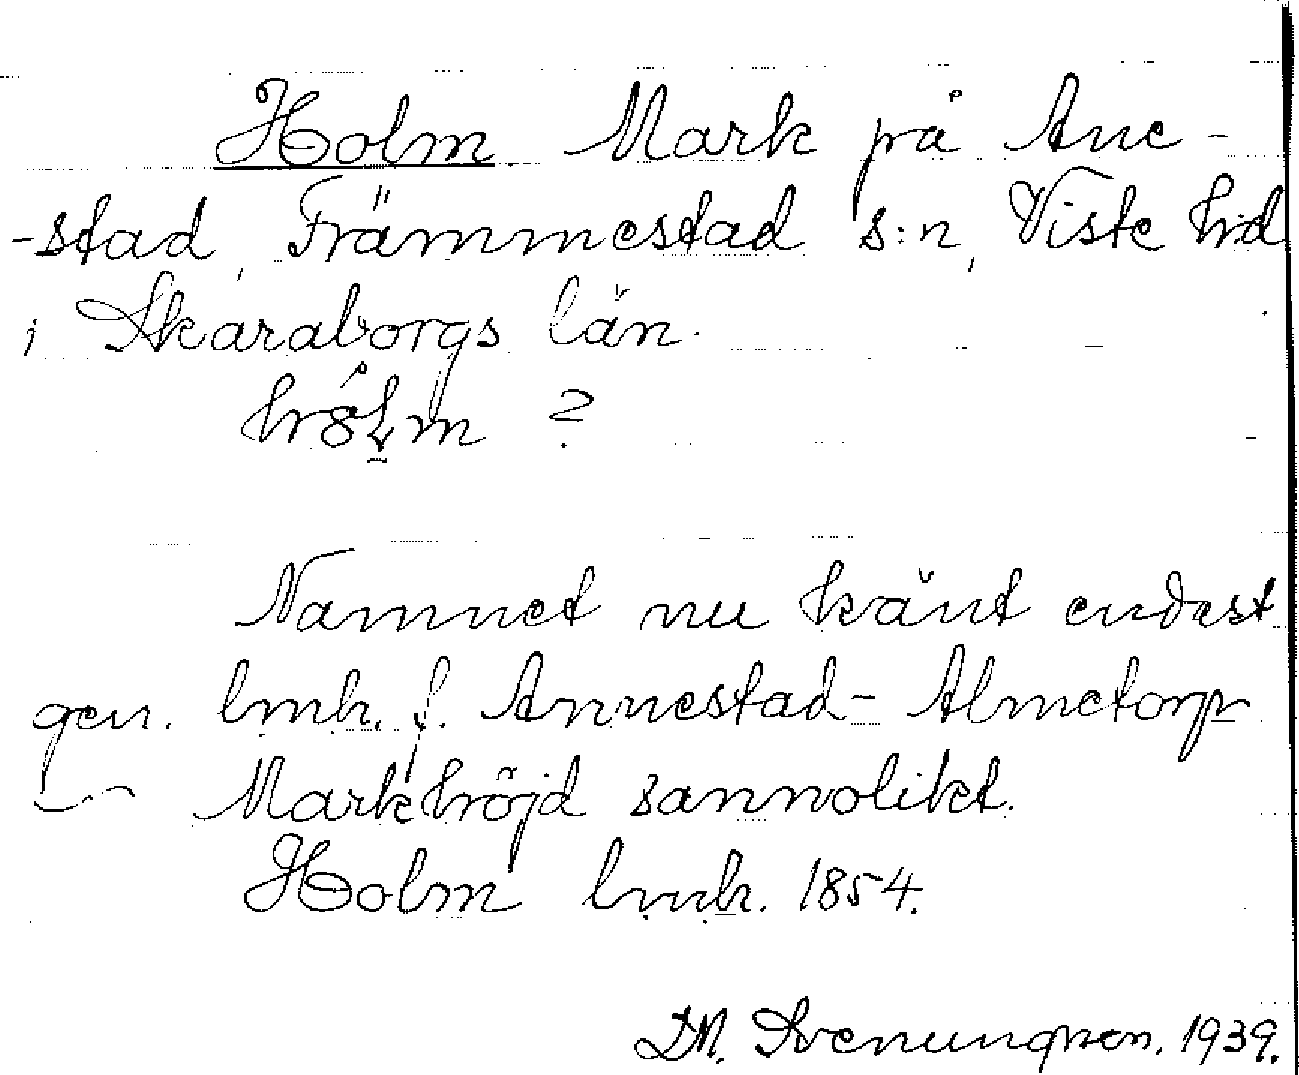 Holm Mark på Ane-
-stad, Främmestad s:n, Viste hd
i Skaraborgs län.
hólm ?
Namnet nu känt endast
gen. lmh. f. Annestad- Almetorp
Markhöjd sannolikt.
Holm lmh. 1854.
D.M. Svenungsson. 1939.